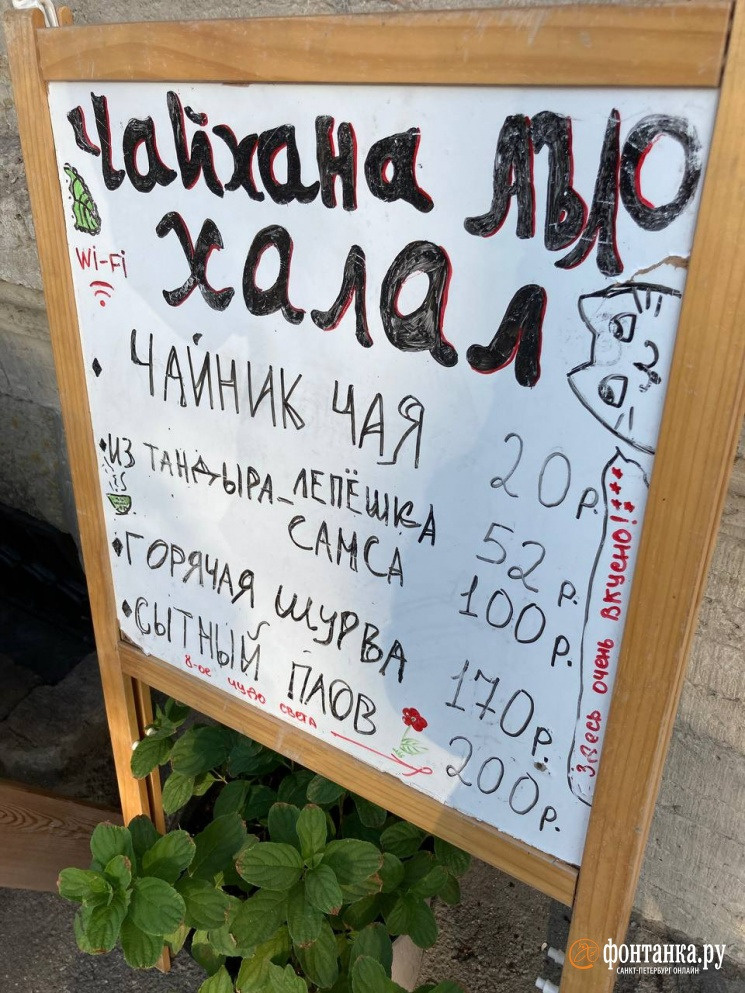 Чайхана АЪЛО
Халал
Wi-Fi
ЧАЙНИК ЧАЯ 20 Р.
ИЗ ТАНДЫРА-ЛЕПЁШКА 52 Р.
САМСА 100 Р.
ГОРЯЧАЯ ШУРВА 170 Р.
СЫТНЫЙ ПЛОВ 200 Р.
8-ое чудо света
Здесь очень вкусно!***
фонтанка.ру
САНКТ-ПЕТЕРБУРГ ОНЛАЙН